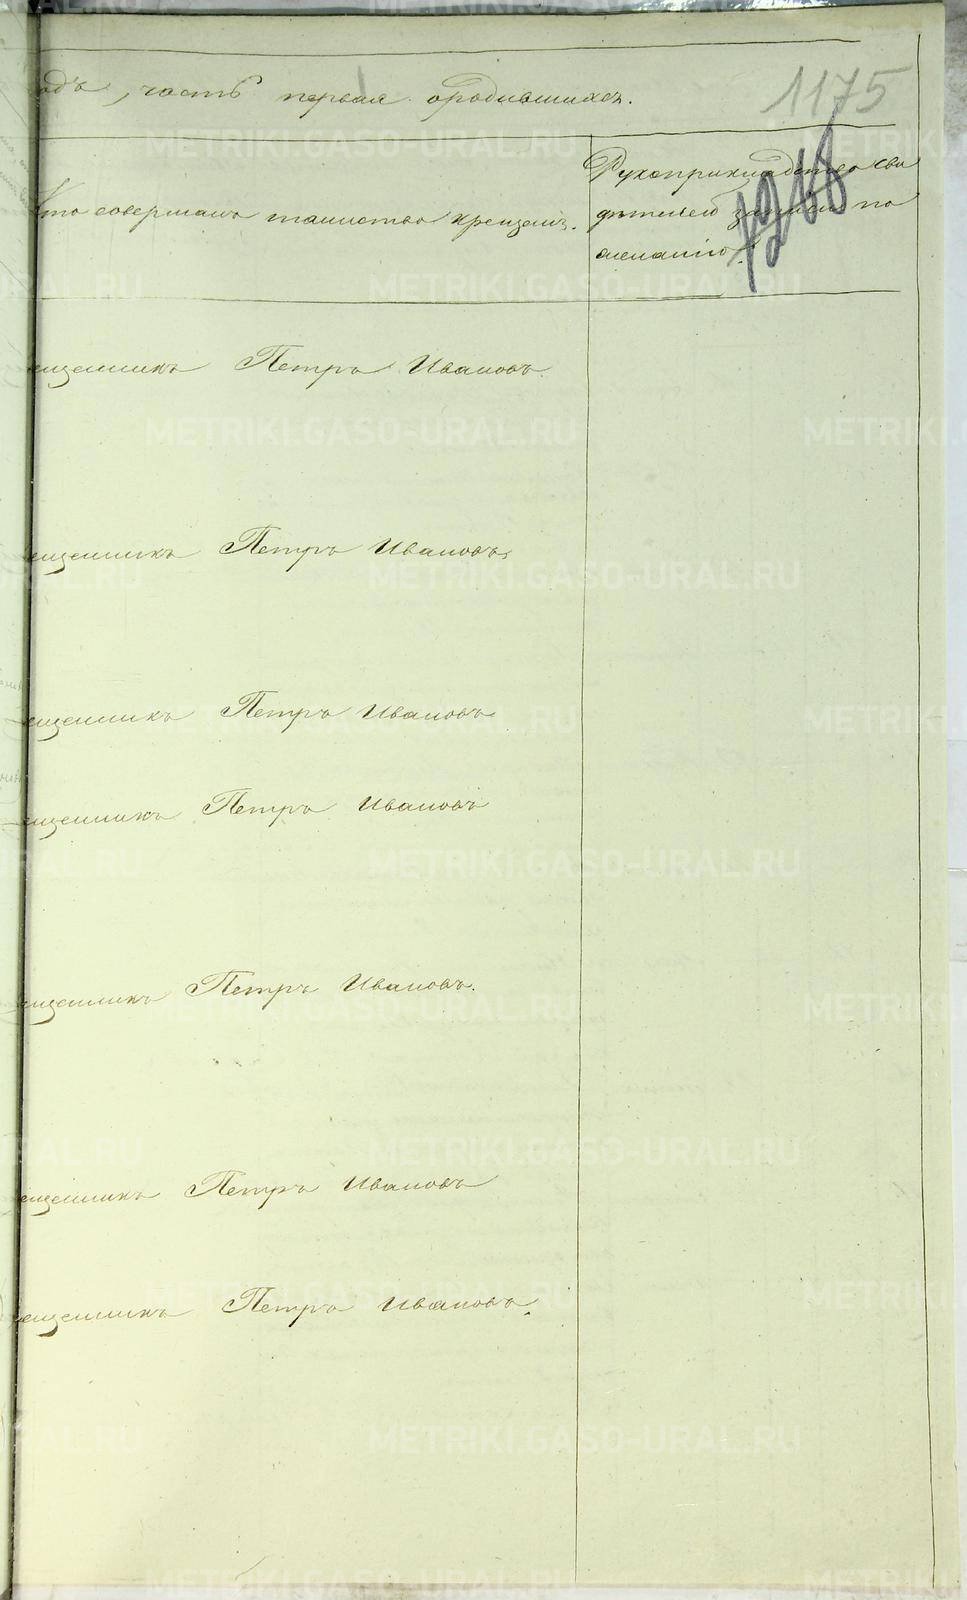 одъ, часть первая о родившихся.
1175
1268
Кто совершалъ таинство крещенія.
Рукоприкладство сви
дѣтелей записи по
желанію.
ященникъ Петръ Ивановъ.
ященникъ Петръ Ивановъ
ященникъ Петръ Ивановъ
ященникъ Петръ Ивановъ
ященникъ Петръ Ивановъ.
ященникъ Петръ Ивановъ
ященникъ Петръ Ивановъ.
METRIKI.GASO-URAL.RU